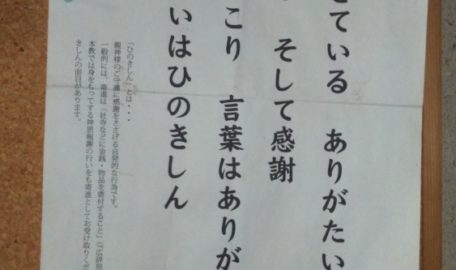 きている　ありがたい
そして感謝
こり　言葉はありが
いはひのきしん
「ひのきしん」とは・・・
親神様のご守護に感謝をささげる自発的な行為です。
一般的には、寄進は「社寺などに金銭・物品を寄付すること」
本教では身をもってする神恩報謝の行いをも寄進としてお受け取りく
きしんの面目があります。